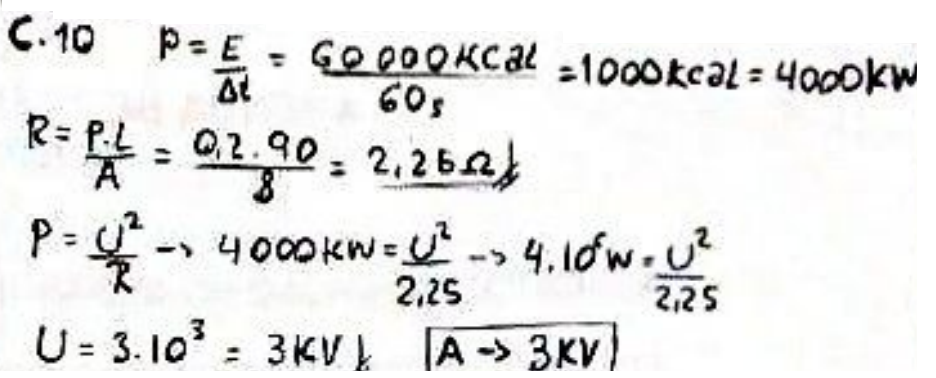 C.10 P = E/Δt = 60 000 KCal/60s = 1000 kcal = 4000 kW
R = P.L/A = 0,2.90/8 = 2,25Ω
P = U²/R -> 4000 KW = U²/2,25 -> 4.10⁶ W = U²/2,25
U = 3.10³ = 3KV A -> 3KV